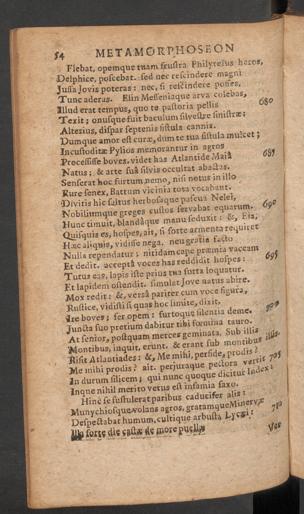 54 METAMORPHOSEON
Flebat, opemque tuam frustra Philyreius heros,
Delphice, poscebat. sed nec rescindere magni
Jussa Jovis poteras: nec, si rescindere posses,
Tunc aderas. Elin Messeniaque arva colebas,
Illud erat tempus, quo te pastoria pellis 680
Texit; onusque fuit baculum silvestre sinistræ:
Alterius, dispar septenis fistula cannis.
Dumque amor est curæ, dum te tua fistula mulcet;
Incustoditæ Pylios memorantur in agros
Processisse boves. videt has Atlantide Maiâ 685
Natus; & arte suâ silvis occultat abactas.
Senserat hoc furtum nemo, nisi notus in illo
Rure senex, Battum vicinia tota vocabant.
Divitis hic saltus herbosaque pascua Nelei,
Nobiliumque greges custos servabat equarum. 690
Hunc timuit, blandâque manu seduxit: &, Eia,
Quisquis es, hospes, ait, si forte armenta requiret
Hæc aliquis, vidisse nega. neu gratia facto
Nulla rependatur; nitidam cape præmia vaccam
Et dedit. acceptâ voces has reddidit hospes: 695
Tutus eas, lapis iste prius tua furta loquatur.
Et lapidem ostendit. simulat Jove natus abire.
Mox redit: &, versâ pariter cum voce figurâ,
Rustice, vidisti si quas hoc limite, dixit,
Ire boves; fer opem: furtoque silentia deme. 700
Juncta suo pretium dabitur tibi fœmina tauro.
At senior, postquam merces geminata, Sub illis
Montibus, inquit, erunt. & erant sub montibus illis.
Risit Atlantiades: &, Me mihi, perfide, prodis?
Me mihi prodis? ait. perjuraque pectora vertit 705
In durum silicem; qui nunc quoque dicitur Index:
Inque nihil merito vetus est infamia saxo.
Hinc se sustulerat paribus caducifer alis:
Munychiosque volans agros, gratamque Minervæ
Despectabat humum, cultique arbusta Lycæi: 710
Illa forte die castæ de more puellæ
Ver